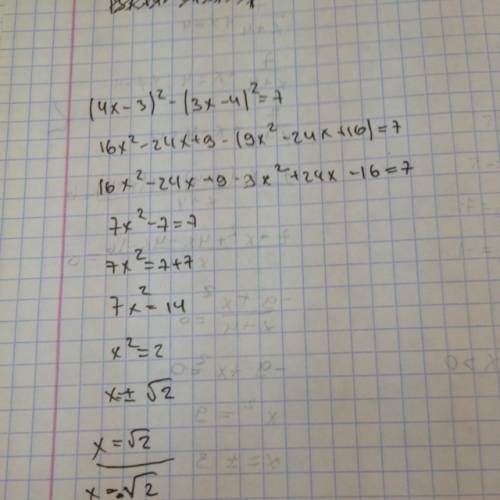 (4x-3)²-(3x-4)²=7
16x²-24x+9-(9x²-24x+16)=7
16x²-24x+9-9x²+24x-16=7
7x²-7=7
7x²=7+7
7x²=14
x²=2
x=± √2
x=√2
x=-√2